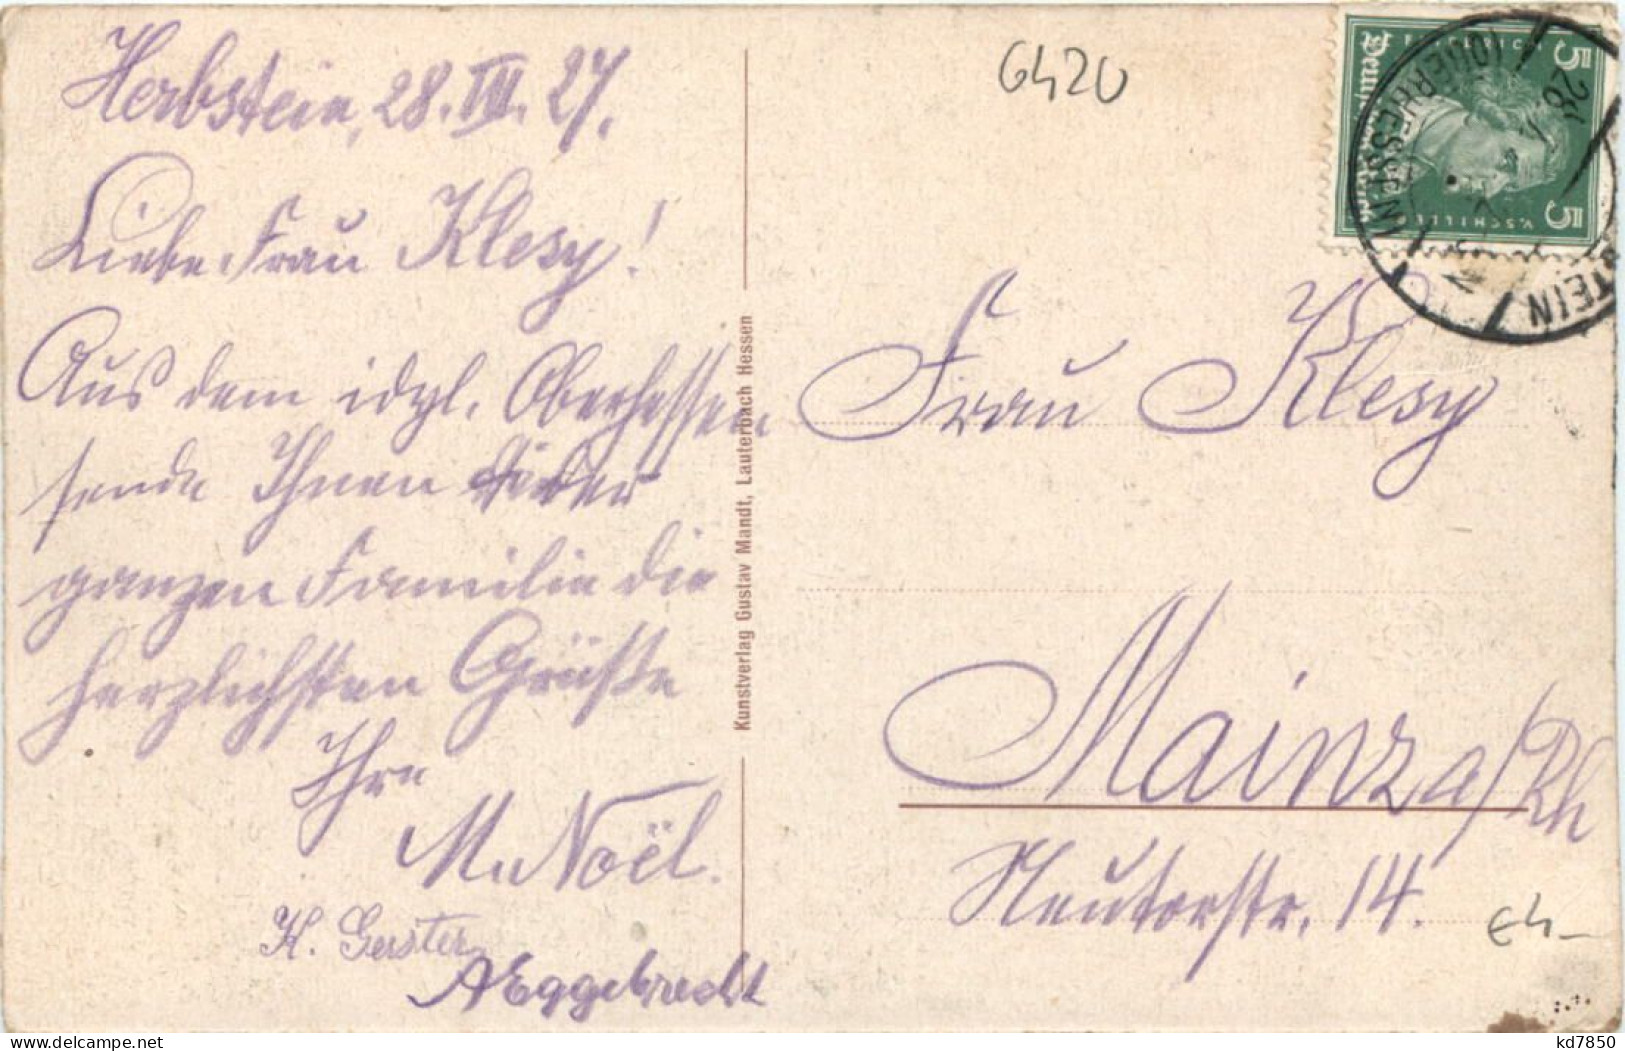 Herbstein, 28. VII. 27.
Liebe Frau Klesy!
Aus dem idyl. Oberhessen
sende Ihnen
ganzen Familie die
herzlichsten Grüße
Ihre
M. Noël.
K. Gerster
A Eggebrecht
Kunstverlag Gustav Mandt, Lauterbach Hessen
6420
5 5
Deutsches Reich
V. SCHILLER
(OBERHESSEN)
28.
Frau Klesy
Mainz a/Rh
Neutorstr. 14.
E4-
kd7850